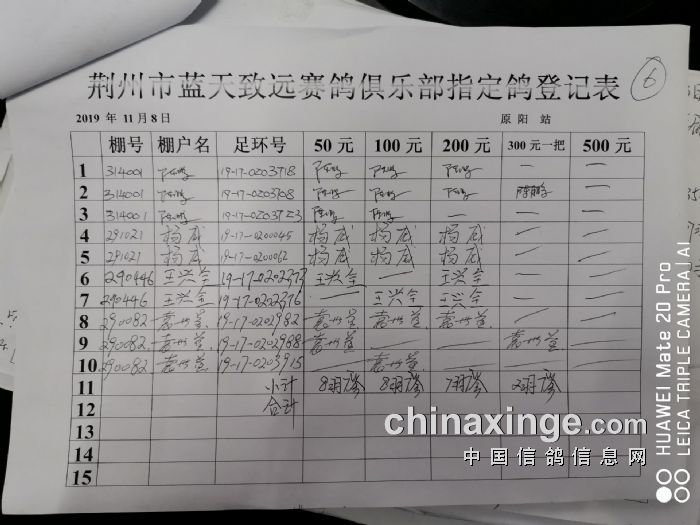 荆州市蓝天致远赛鸽俱乐部指定鸽登记表 6
2019 年 11 月 8 日 原阳 站
棚号 棚户名 足环号 50 元 100 元 200 元 300元一把 500 元
1 314001 陈鹏 19-17-0203718 陈鹏 陈鹏 陈鹏 — —
2 314001 陈鹏 19-17-0203708 陈鹏 陈鹏 陈鹏 陈鹏 —
3 314001 陈鹏 19-17-0203723 陈鹏 陈鹏 — — —
4 291021 杨威 19-17-0200045 杨威 杨威 杨威 — —
5 291021 杨威 19-17-0200062 杨威 杨威 杨威 — —
6 290446 王兴全 19-17-0202373 王兴全 — 王兴全 — —
7 290446 王兴全 19-17-0202376 — 王兴全 王兴全 — —
8 290082 19-17-0202982 — —
9 290082 19-17-0202988 — — —
10 290082 19-17-0203915 — — — —
11 小计 8羽 8羽 7羽 2羽
12 合计
13
14
15
chinaxinge.com
中国信鸽信息网
HUAWEI Mate 20 Pro
LEICA TRIPLE CAMERA | AI